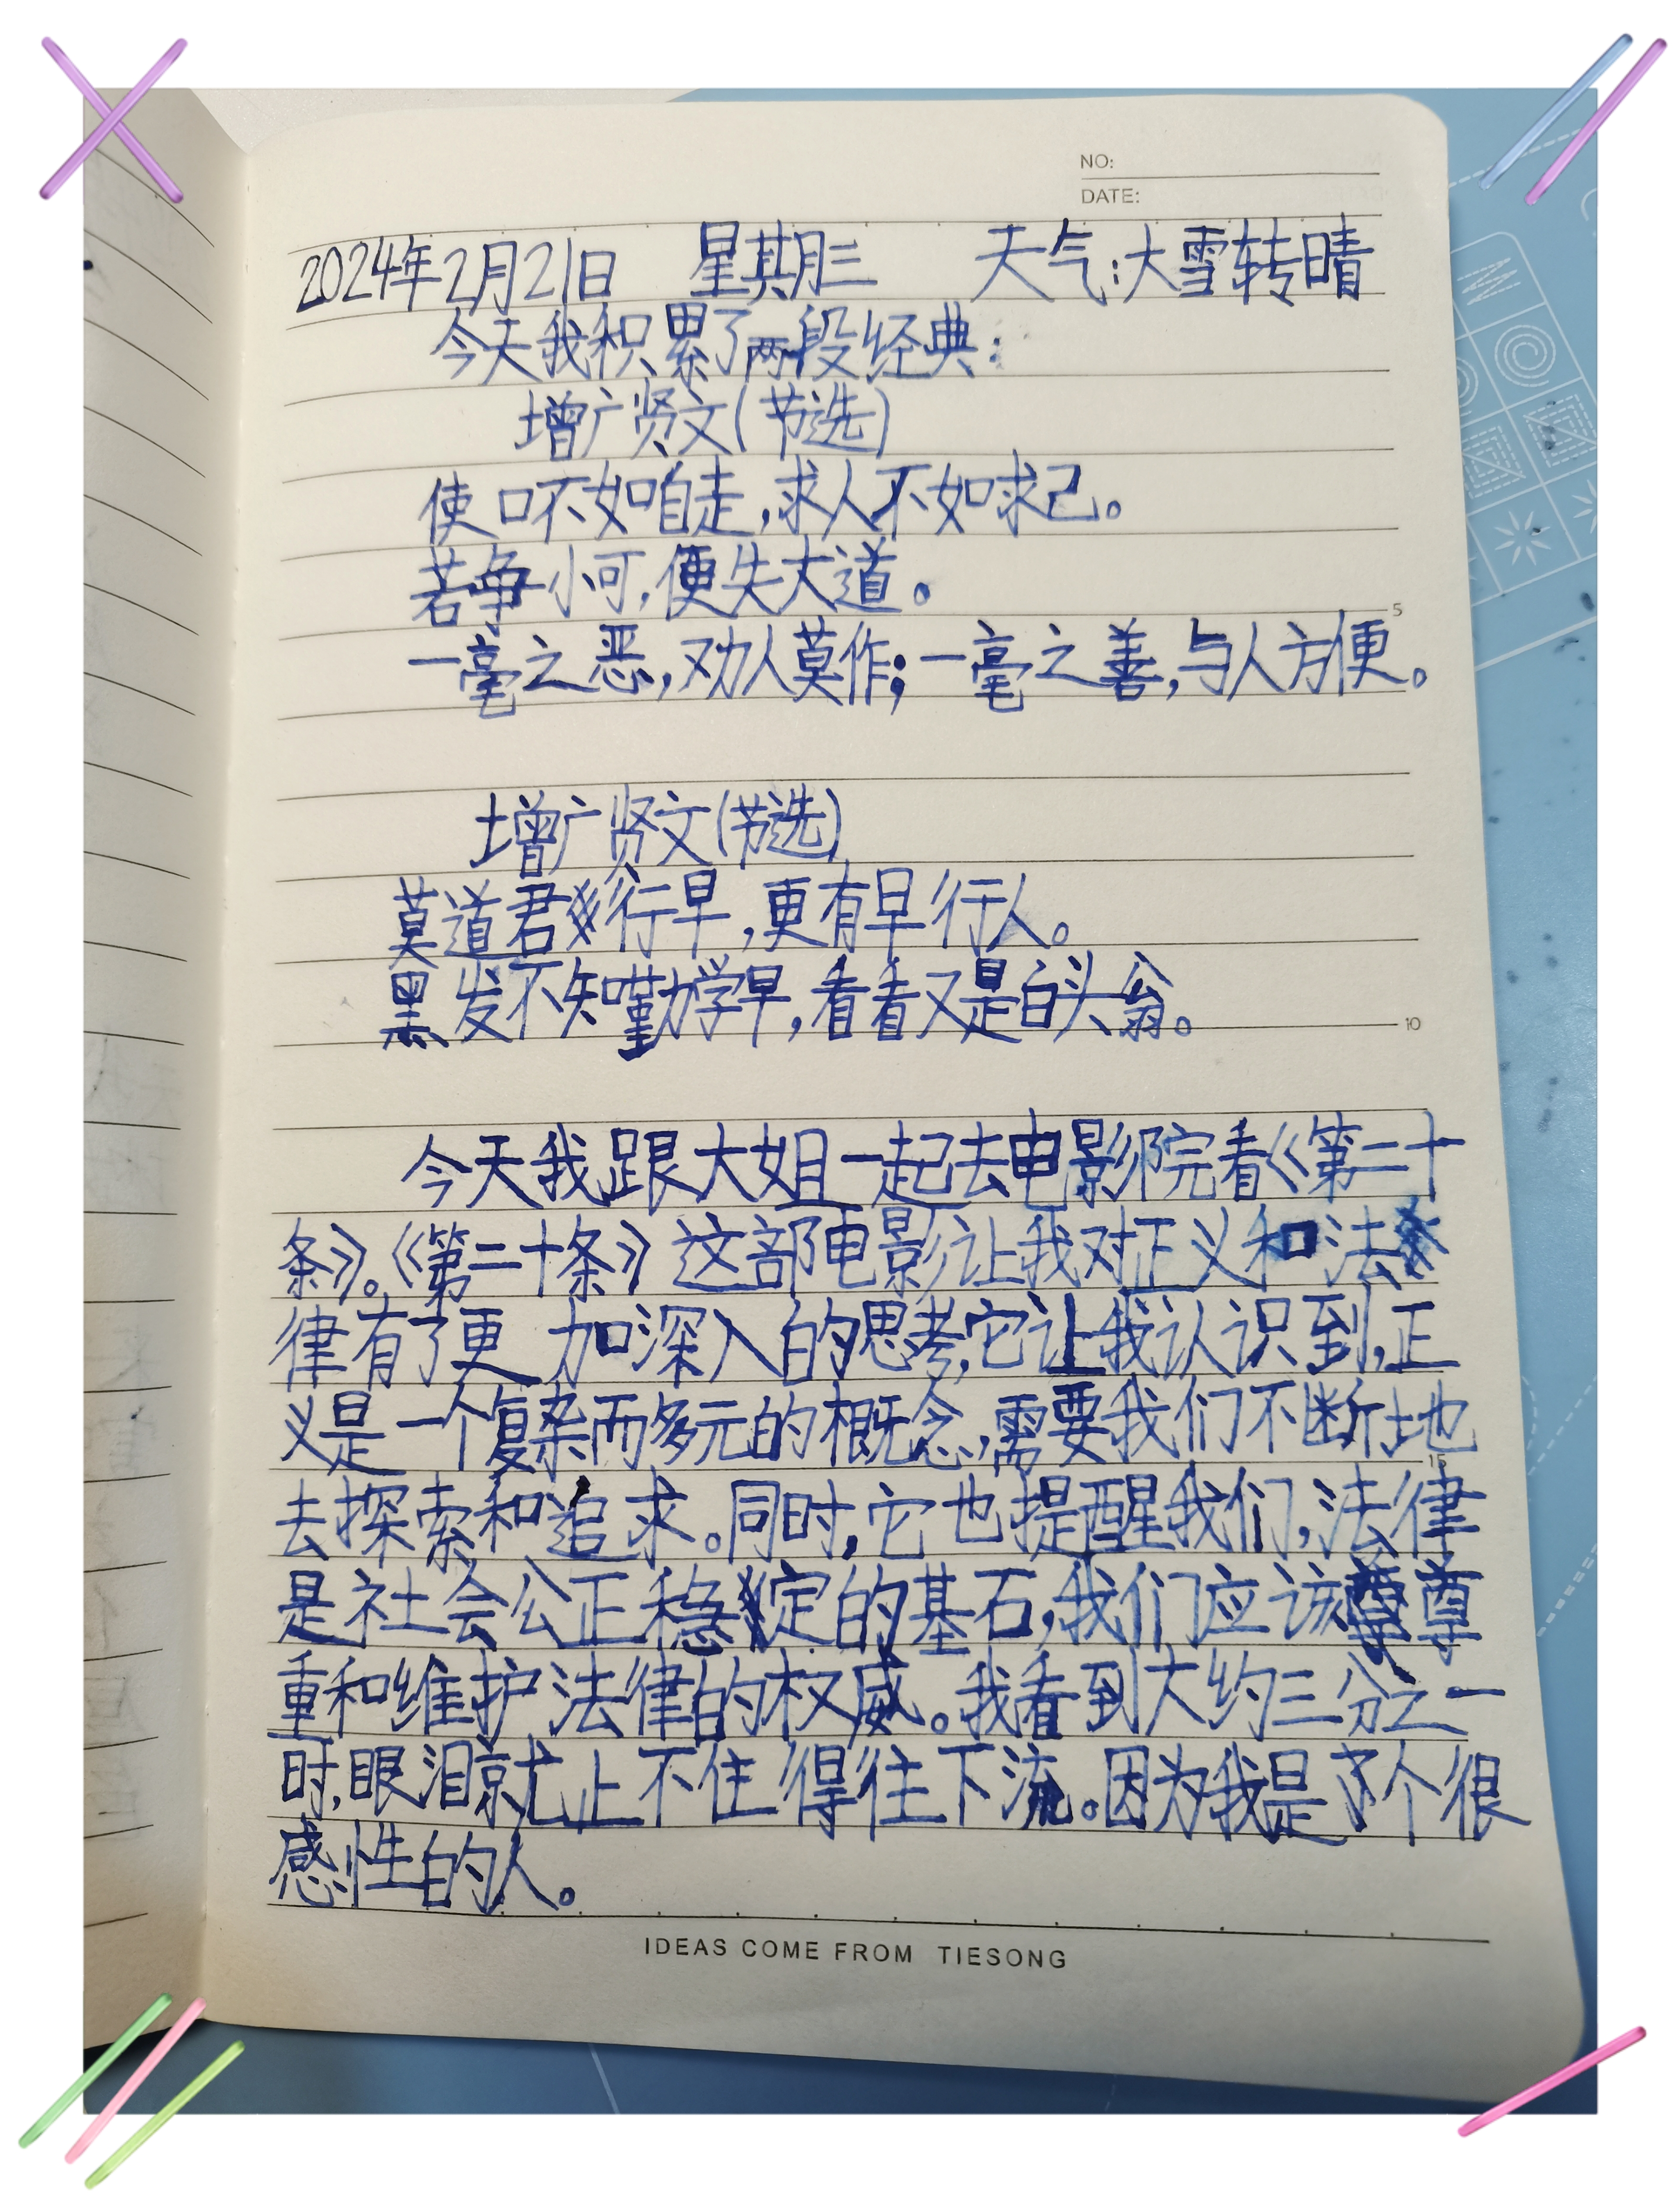 NO:
DATE:
2024年2月21日 星期三 天气:大雪转晴
今天我积累了两段经典:
增广贤文(节选)
使口不如自走,求人不如求己。
若争小可,便失大道。
5
一毫之恶,劝人莫作;一毫之善,与人方便。
增广贤文(节选)
莫道君行早,更有早行人。
黑发不知勤学早,看看又是白头翁。
10
今天我跟大姐一起去电影院看《第二十
条》。《第二十条》这部电影让我对正义和法
律有了更加深入的思考,它让我认识到,正
义是一个复杂而多元的概念,需要我们不断地
15
去探索和追求。同时,它也提醒我们,法律
是社会公正稳定的基石,我们应该尊
重和维护法律的权威。我看到大约三分之一
时,眼泪就止不住得往下流。因为我是个很
感性的人。
IDEAS COME FROM TIESONG